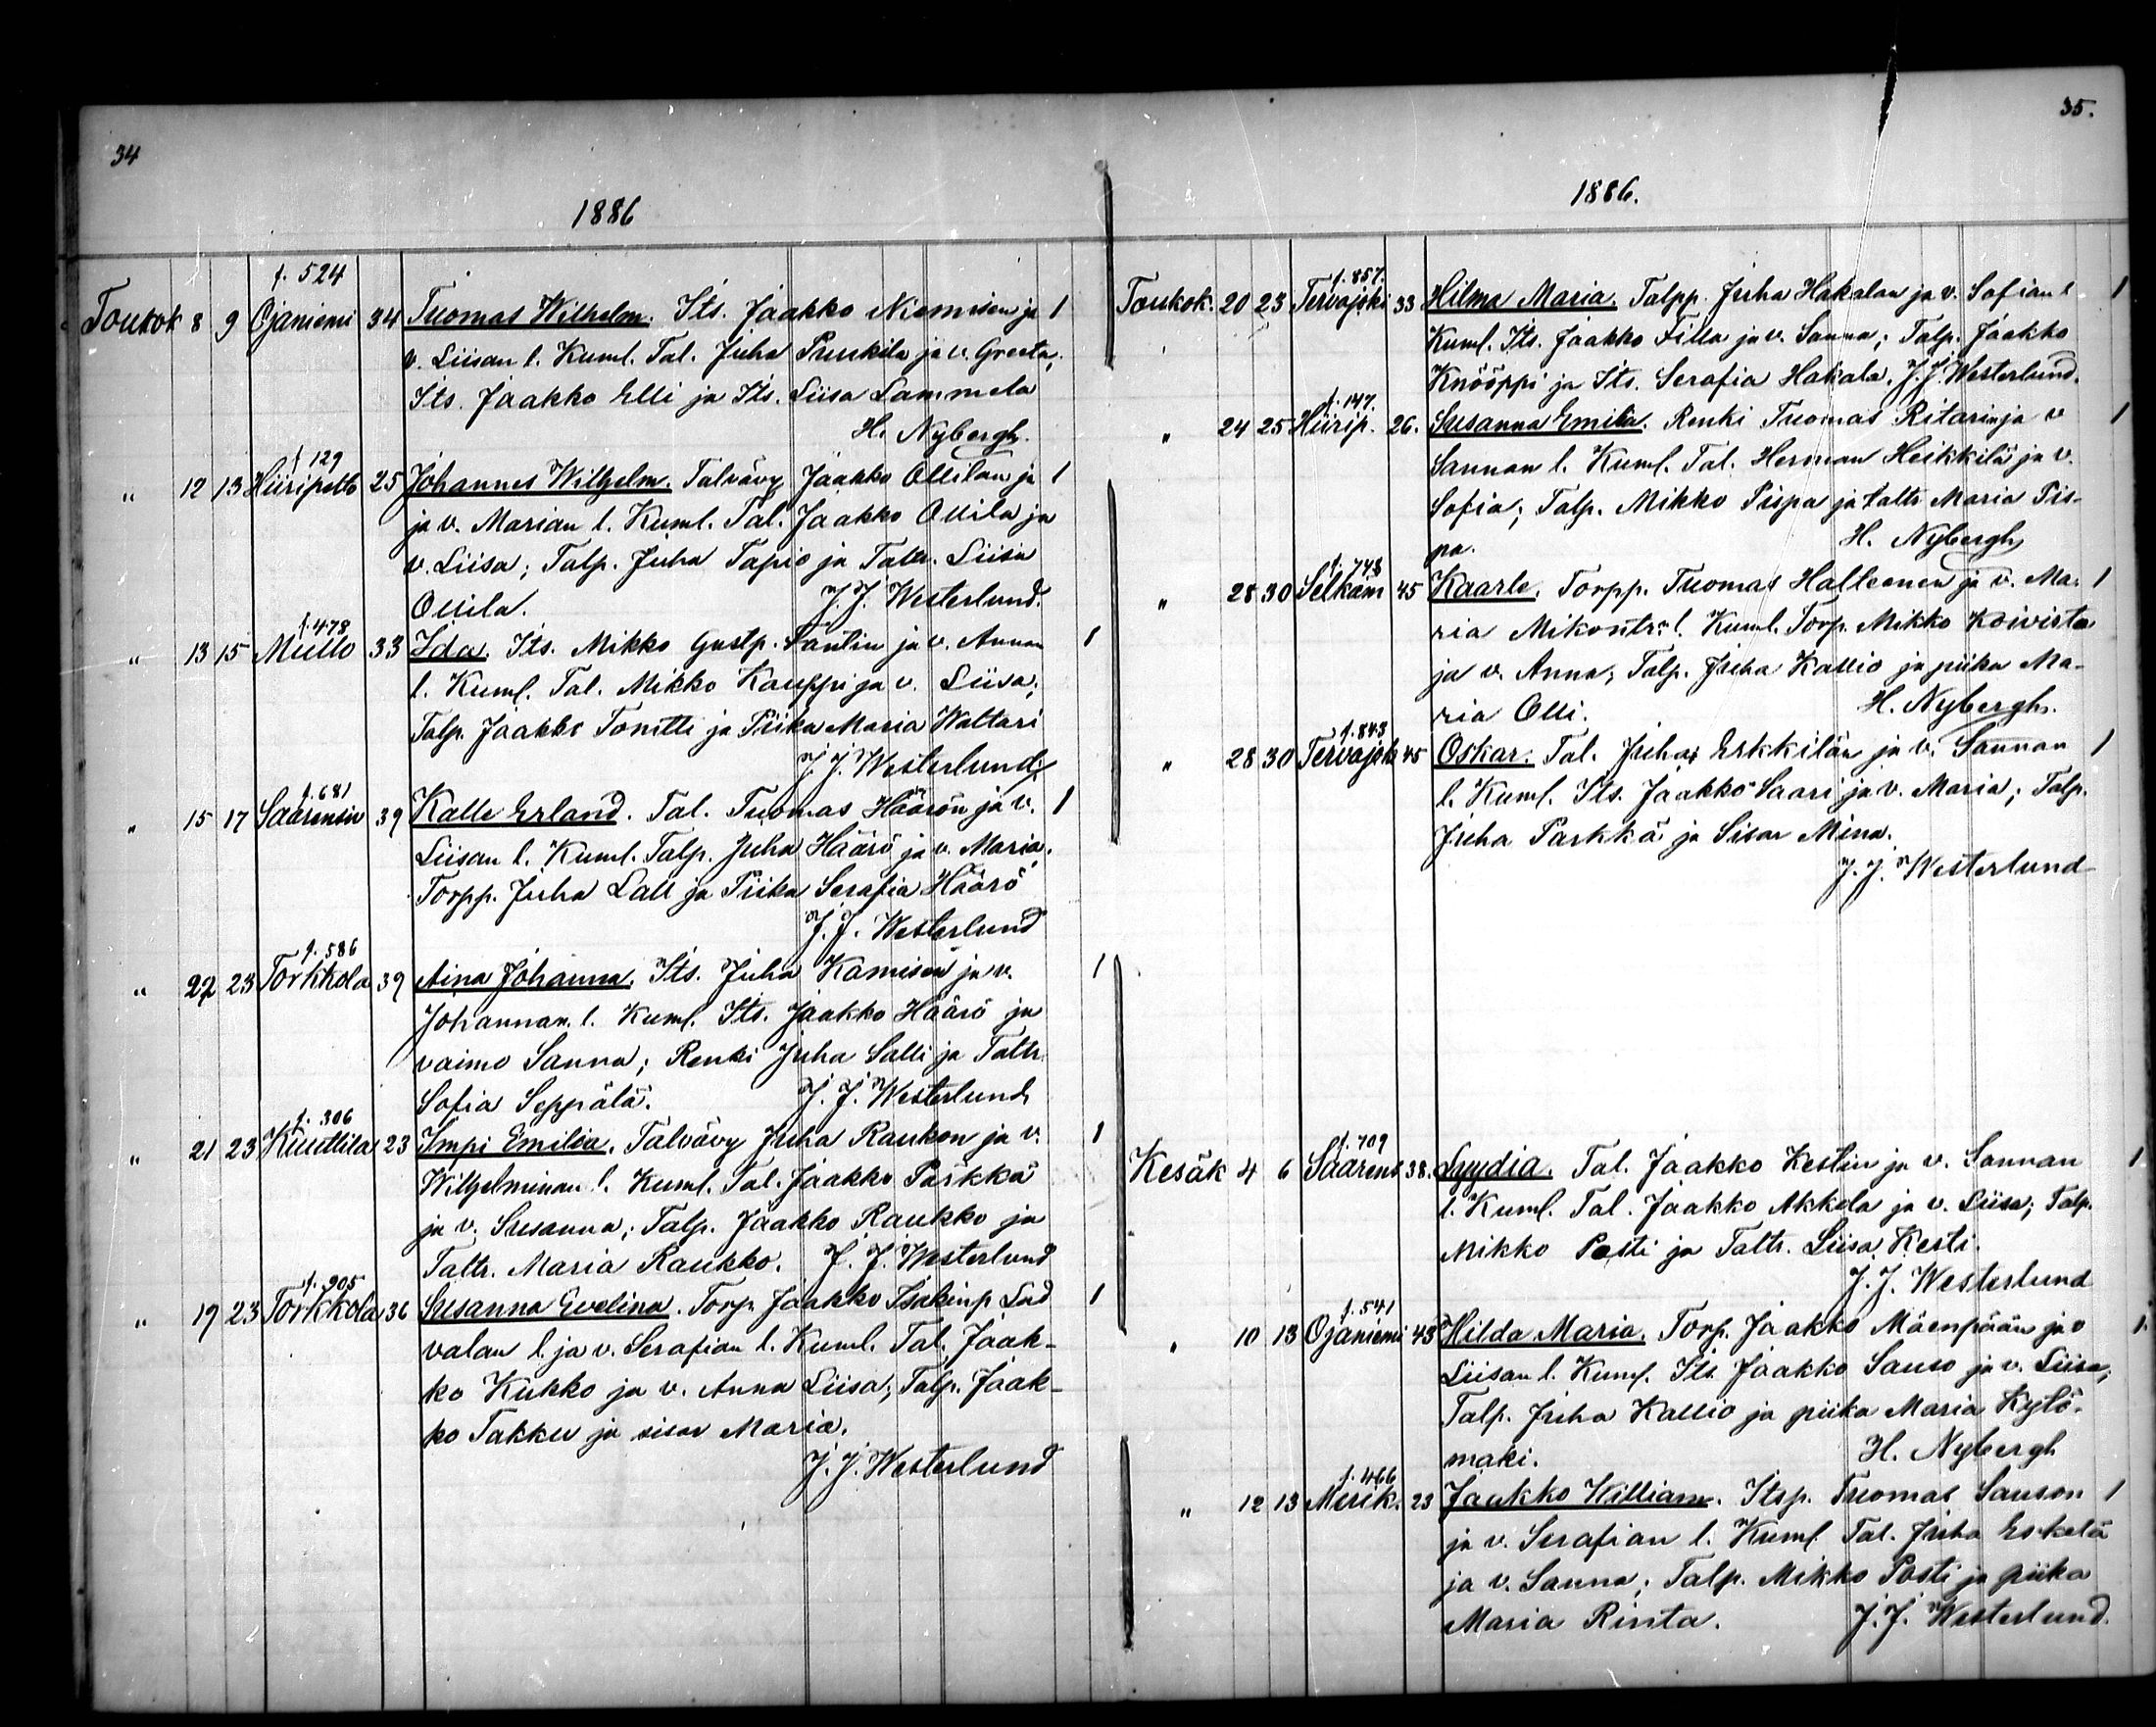 34
1886
f. 524
Toukok 8 9 Ojaniemi 34 Tuomas Wilhelm. Its. Jaakko Niemisen ja 1
v. Liisan l. Kuml. Tal. Juha Puukila ja v. Greeta;
Its. Jaakko Elli ja Its. Liisa Lammela
H. Nybergh.
f 129
" 12 13 Hiiripelto 25 Johannes Wilhelm. Talvävy Jaakko Ollilan ja 1
ja v. Marian l. Kuml. Tal. Jaakko Ollila ja
v. Liisa; Talp. Juha Tapio ja Taltr. Liisa
Ollila. J. J. Westerlund.
f. 478
" 13 15 Mullo 33 Ida. Its. Mikko Gustp. Santin ja v. Annan 1
l. Kuml. Tal. Mikko Kauppi ja v. Liisa;
Talp. Jaakko Tonttti ja Piika Maria Waltari
J. J. Westerlund
f. 681
" 15 17 Saarensiv 39 Kalle Erland. Tal. Tuomas Häärön ja v. 1
Liisan l. Kuml. Talp. Juha Häärö ja v. Maria.
Torpp. Juha Lall ja Piika Serafia Häärö
J. J. Westerlund
f. 586
" 22 23 Torkkola 39 Aina Johanna. Its. Juha Kamisen ja v. 1
Johannan l. Kuml. Its. Jaakko Häärö ja
vaimo Sanna; Renki Juha Salli ja Taltr.
Sofia Seppälä. J. J. Westerlund
f. 306
" 21 23 Kuuttila 23 Impi Emilia. Talvävy Juha Raukon ja v. 1
Wilhelminan l. Kuml. Tal. Jaakko Parkkä
ja v. Susanna; Talp. Jaakko Raukko ja
Taltr. Maria Raukko. J. J. Westerlund
f. 905
" 19 23 Torkkola 36 Susanna Evelina. Torp. Jaakko Isakinp Lad 1
valan l. ja v. Serafian l. Kuml. Tal. Jaak-
ko Kukko ja v. Anna Liisa; Talp. Jaak-
ko Takku ja sisar Maria.
J. J. Westerlund
35.
1886.
f. 857.
Toukok. 20 23 Tervajoki 33 Hilma Maria. Talpp. Juha Hakalan ja v. Sofian l 1
Kuml. Its. Jaakko Filla ja v. Sanna; Talp. Jaakko
Knööppi ja Its. Serafia Hakala. J. J. Westerlund.
f. 147.
" 24 25 Hiirip. 26. Susanna Emilia. Renki Tuomas Ritarin ja v 1
Sannan l. Kuml. Tal. Herman Heikkilä ja v.
Sofia; Talp. Mikko Pispa ja taltr Maria Pis-
pa. H. Nybergh
f. 748
" 28 30 Selkäm 45 Kaarle. Torpp. Tuomas Halleenen ja v. Ma- 1
ria Mikontr. l. Kuml. Torp. Mikko Koivisto
ja v. Anna; Talp. Juha Kallio ja piika Ma-
ria Olli. H. Nybergh.
f. 843
" 28 30 Tervajok 45 Oskar. Tal. Juha Erkkilän ja v. Sannan 1
l. Kuml. Its. Jaakko Saari ja v. Maria; Talp.
Juha Parkkä ja Sisar Mina.
J. J. Westerlund
f. 709
Kesäk 4 6 Saarens 38. Lyydia. Tal. Jaakko Kestin ja v. Sannan 1
l. Kuml. Tal. Jaakko Akkola ja v. Liisa; Talp.
Mikko Posti ja Taltr. Liisa Kesti.
J. J. Westerlund
f. 541
" 10 13 Ojaniemi 43 Hilda Maria. Torp. Jaakko Mäenpään ja v 1.
Liisan l. Kuml. Its. Jaakko Sauso ja v. Liisa;
Talp. Juha Kallio ja piika Maria Kytö-
mäki. H. Nybergh
f. 466
" 12 13 Merik. 23 Jaakko William. Itsp. Tuomas Sauson 1
ja v. Serafian l. Kuml. Tal. Juha Eskelä
ja v. Sanna; Talp. Mikko Posti ja piika
Maria Rinta. J. J. Westerlund.